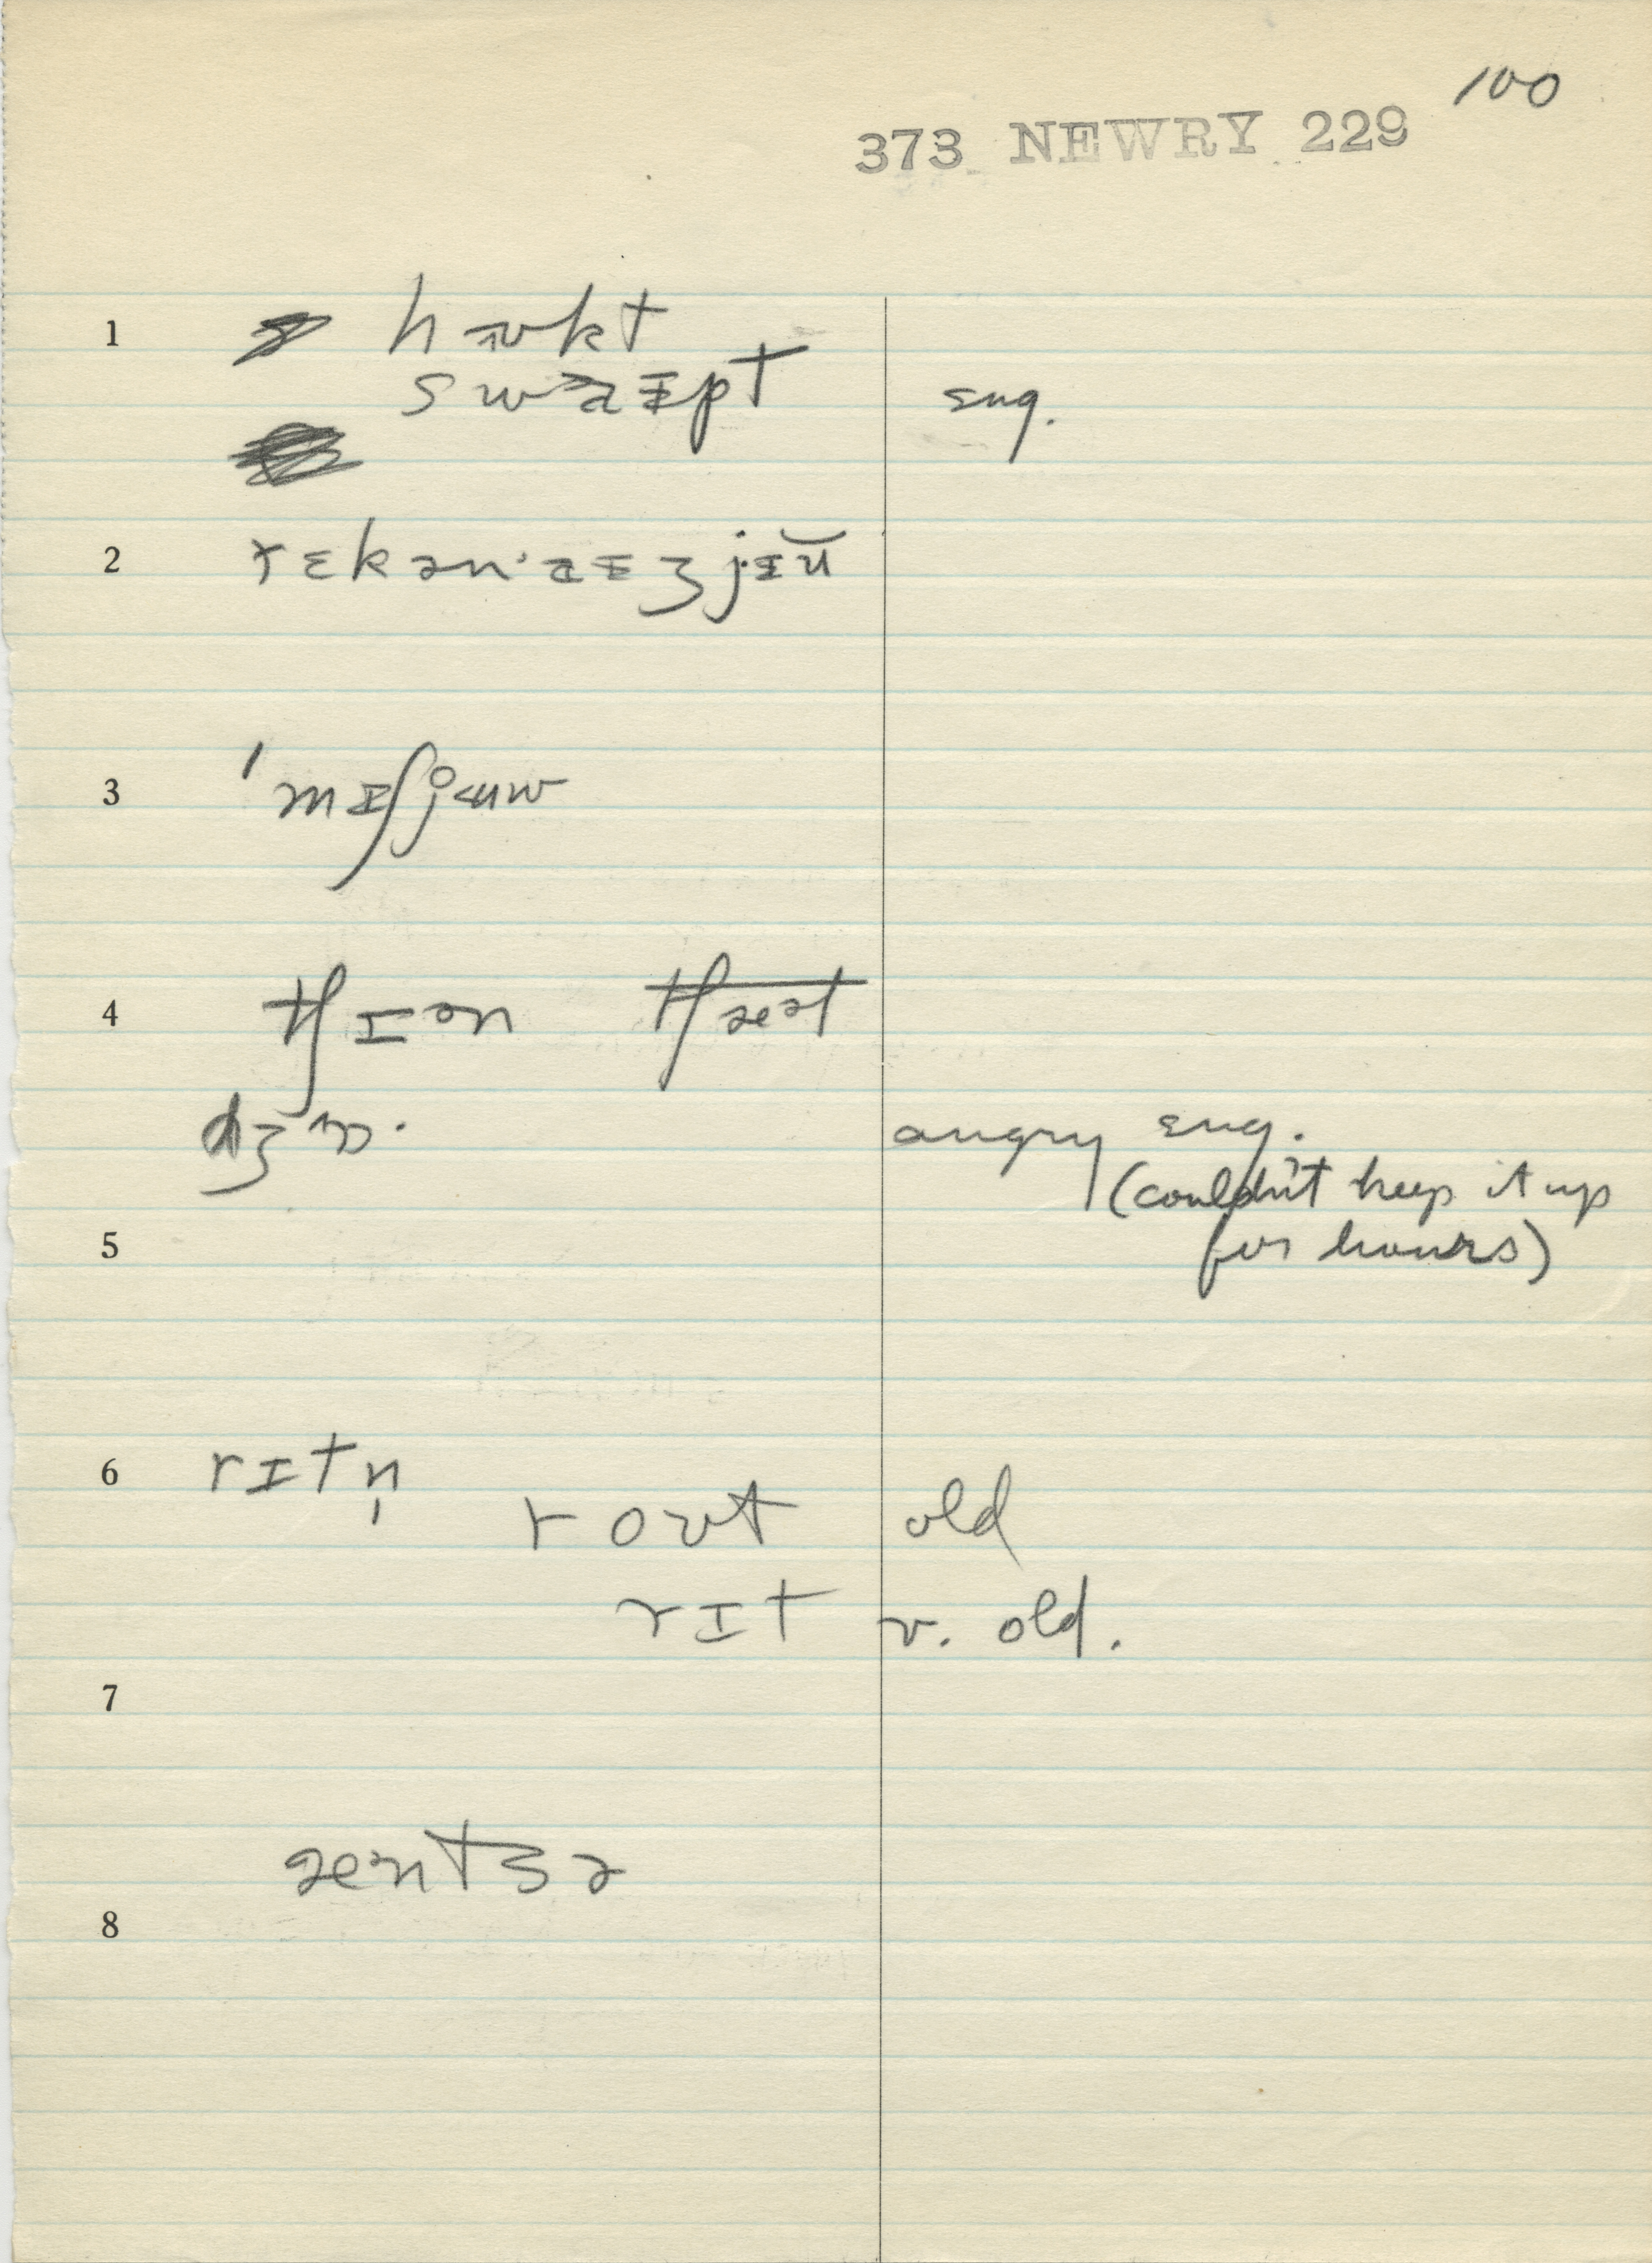 100
373 NEWRY 229
1 hɒʊkt
swaɪpt sug.
2 rɛkən·aɪʒjɪŭ
3 ˈmɪʃjuw
4 tʃɪən tʃæət
dʒɒ· angry sug.
(couldn't keep it up
5 for hours)
6 rɪtn̩
roʊt old
rɪt v. old.
7
æntɜə
8